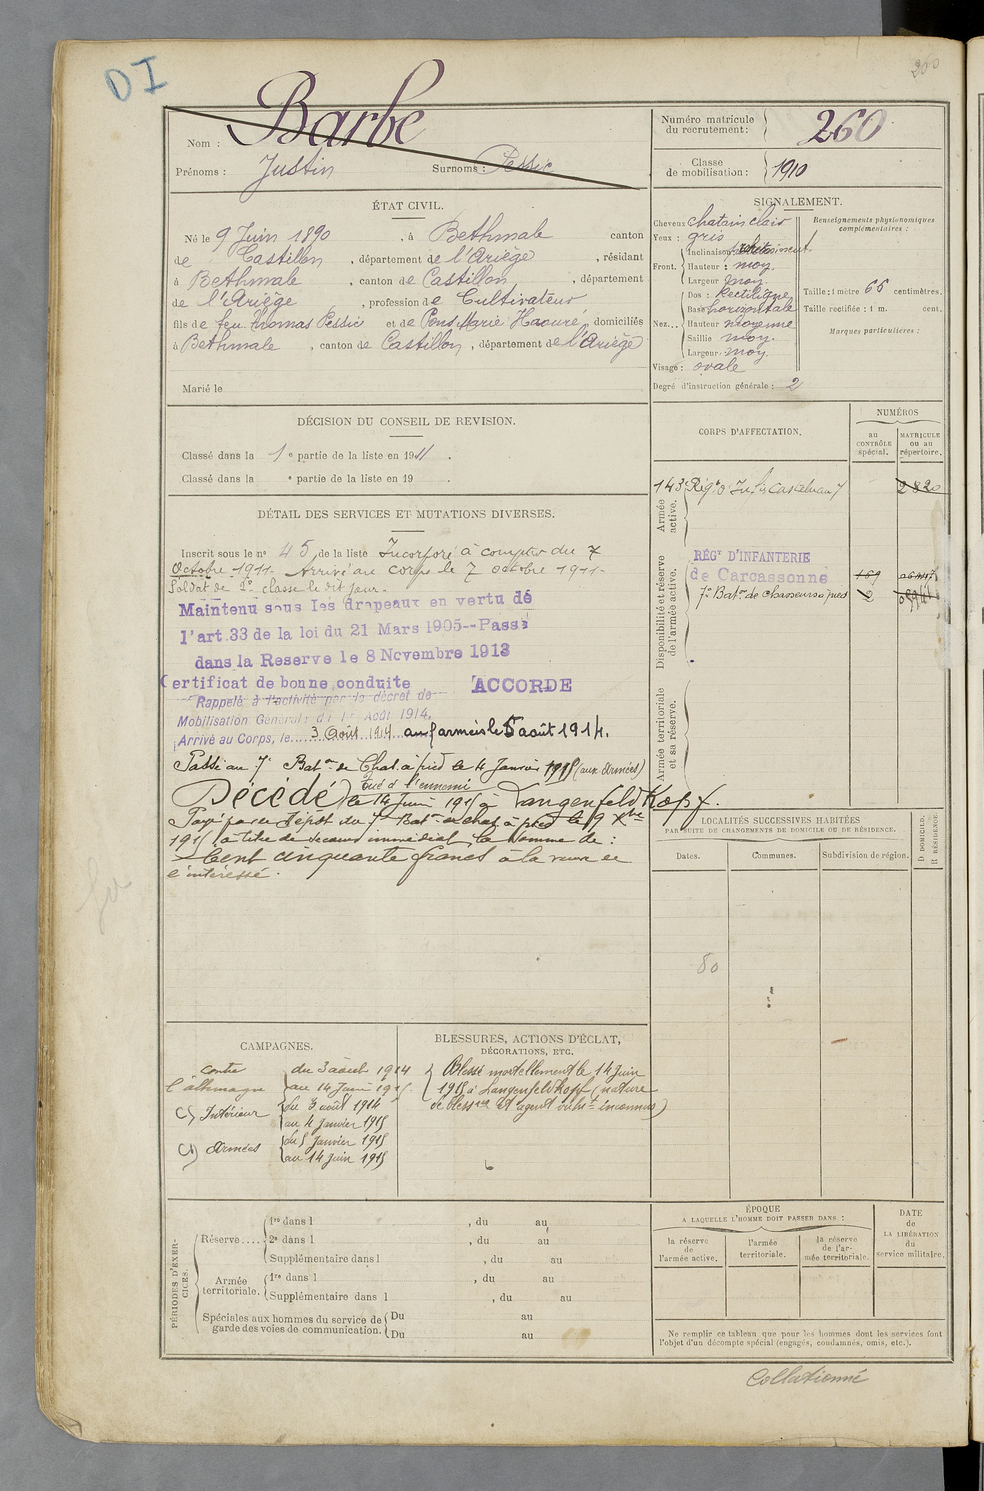 DI
260
Nom : Barbe
Prénoms : Justin Surnoms : Pessic
Numéro matricule du recrutement : 260
Classe de mobilisation : 1910
ÉTAT CIVIL.
Né le 9 Juin 1890, à Bethmale canton
de Castillon, département de l'Ariège, résidant
à Bethmale, canton de Castillon, département
de l'Ariège, profession de Cultivateur
fils de feu Thomas Pessic et de Pons Marie Haouré, domiciliés
à Bethmale, canton de Castillon, département de l'Ariège
Marié le
SIGNALEMENT.
Cheveux chatain clair
Yeux : gris
Front. Inclinaison :
Hauteur : moy.
Largeur moy.
Nez... Dos : Rectiligne
Base horizontale
Hauteur moyenne
Saillie moy.
Largeur moy.
Visage : ovale
Degré d'instruction générale : 2
Renseignements physionomiques complémentaires :
Taille : 1 mètre 66 centimètres.
Taille rectifiée : 1 m. cent.
Marques particulières :
DÉCISION DU CONSEIL DE REVISION.
Classé dans la 1e partie de la liste en 1911.
Classé dans la e partie de la liste en 19 .
CORPS D'AFFECTATION.
NUMÉROS
au CONTRÔLE spécial.
MATRICULE ou au répertoire.
Armée active.
143e Régt d'Infie Castelnau/
2820
Disponibilité et réserve de l'armée active.
RÉGT D'INFANTERIE
de Carcassonne
7e Baton de Chasseurs à pied
Armée territoriale et sa réserve.
DÉTAIL DES SERVICES ET MUTATIONS DIVERSES.
Inscrit sous le no 45 de la liste Incorporé à compter du 7
Octobre 1911. Arrivé au corps le 7 octobre 1911.
Soldat de 2e classe le dit jour.
Maintenu sous les drapeaux en vertu de
l'art.33 de la loi du 21 Mars 1905--Passé
dans la Reserve le 8 Novembre 1913
Certificat de bonne conduite ACCORDE
Rappelé à l'activité par le décret de
Mobilisation Générale du 1er Août 1914.
Arrivé au Corps, le 3 Août 1914 aux armées le 5 août 1914.
Passé au 7e Baton de Chas. à pied le 4 Janvier 1915 (aux Armées)
tué à l'ennemi
Décédé le 14 Juin 1915 à Langenfeldkopf.
Payé par le Dépôt du 7e Baton de chas. à pied le 9 Xbre
1915 à titre de secours immédiat, la somme de :
Cent cinquante francs à la veuve de
l'intéressé.
LOCALITÉS SUCCESSIVES HABITÉES
PAR SUITE DE CHANGEMENTS DE DOMICILE OU DE RÉSIDENCE.
Dates.
Communes.
Subdivision de région.
D DOMICILE.
R RÉSIDENCE.
80
CAMPAGNES.
contre l'allemagne du 3 août 1914
au 14 Juin 1915
C) Intérieur du 3 août 1914
au 4 Janvier 1915
C) Armées du 5 Janvier 1915
au 14 Juin 1915
BLESSURES, ACTIONS D'ÉCLAT,
DÉCORATIONS, ETC.
Blessé mortellement le 14 Juin
1915 à Langenfeldkopf (nature
de bless. et agent vulnt inconnus)
PÉRIODES D'EXERCICES.
Réserve.... 1re dans l , du au
2e dans l , du au
Supplémentaire dans l , du au
Armée territoriale. 1re dans l , du au
Supplémentaire dans l , du au
Spéciales aux hommes du service de garde des voies de communication. Du au
Du au
ÉPOQUE
A LAQUELLE L'HOMME DOIT PASSER DANS :
la réserve de l'armée active.
l'armée territoriale.
la réserve de l'armée territoriale.
DATE de LA LIBÉRATION du service militaire.
Ne remplir ce tableau que pour les hommes dont les services font
l'objet d'un décompte spécial (engagés, condamnés, omis, etc.).
Collationné